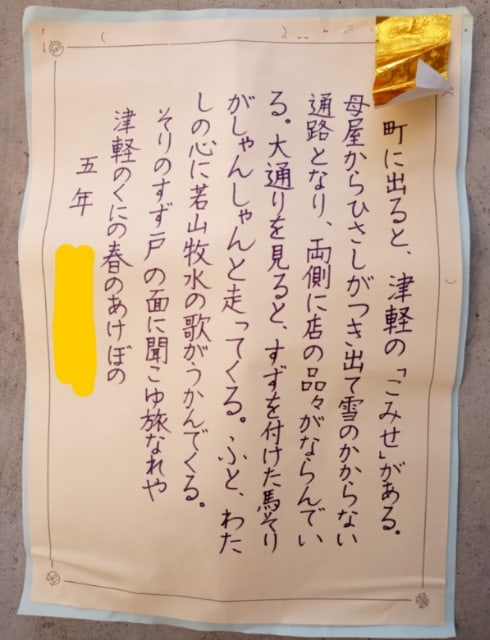 町に出ると、津軽の「こみせ」がある。
母屋からひさしがつき出て雪のかからない
通路となり、両側に店の品々がならんでい
る。大通りを見ると、すずを付けた馬そり
がしゃんしゃんと走ってくる。ふと、わた
しの心に若山牧水の歌がうかんでくる。
そりのすず戸の面に聞こゆ旅なれや
津軽のくにの春のあけぼの
五年